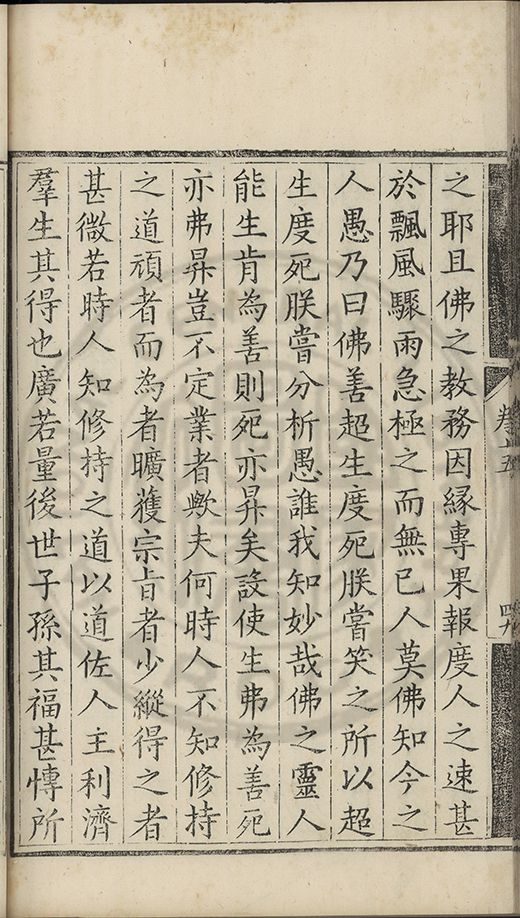 之耶且佛之教務因緣專果報度人之速甚
於飄風驟雨急極之而無已人莫佛知今之
人愚乃曰佛善超生度死朕嘗笑之所以超
生度死朕嘗分析愚誰我知妙哉佛之靈人
能生肯為善則死亦昇矣設使生弗為善死
亦弗昇豈不定業者歟夫何時人不知修持
之道頑者而為者曠獲宗旨者少縱得之者
甚微若時人知修持之道以道佐人主利濟
羣生其得也廣若量後世子孫其福甚慱所
卷十五
四九